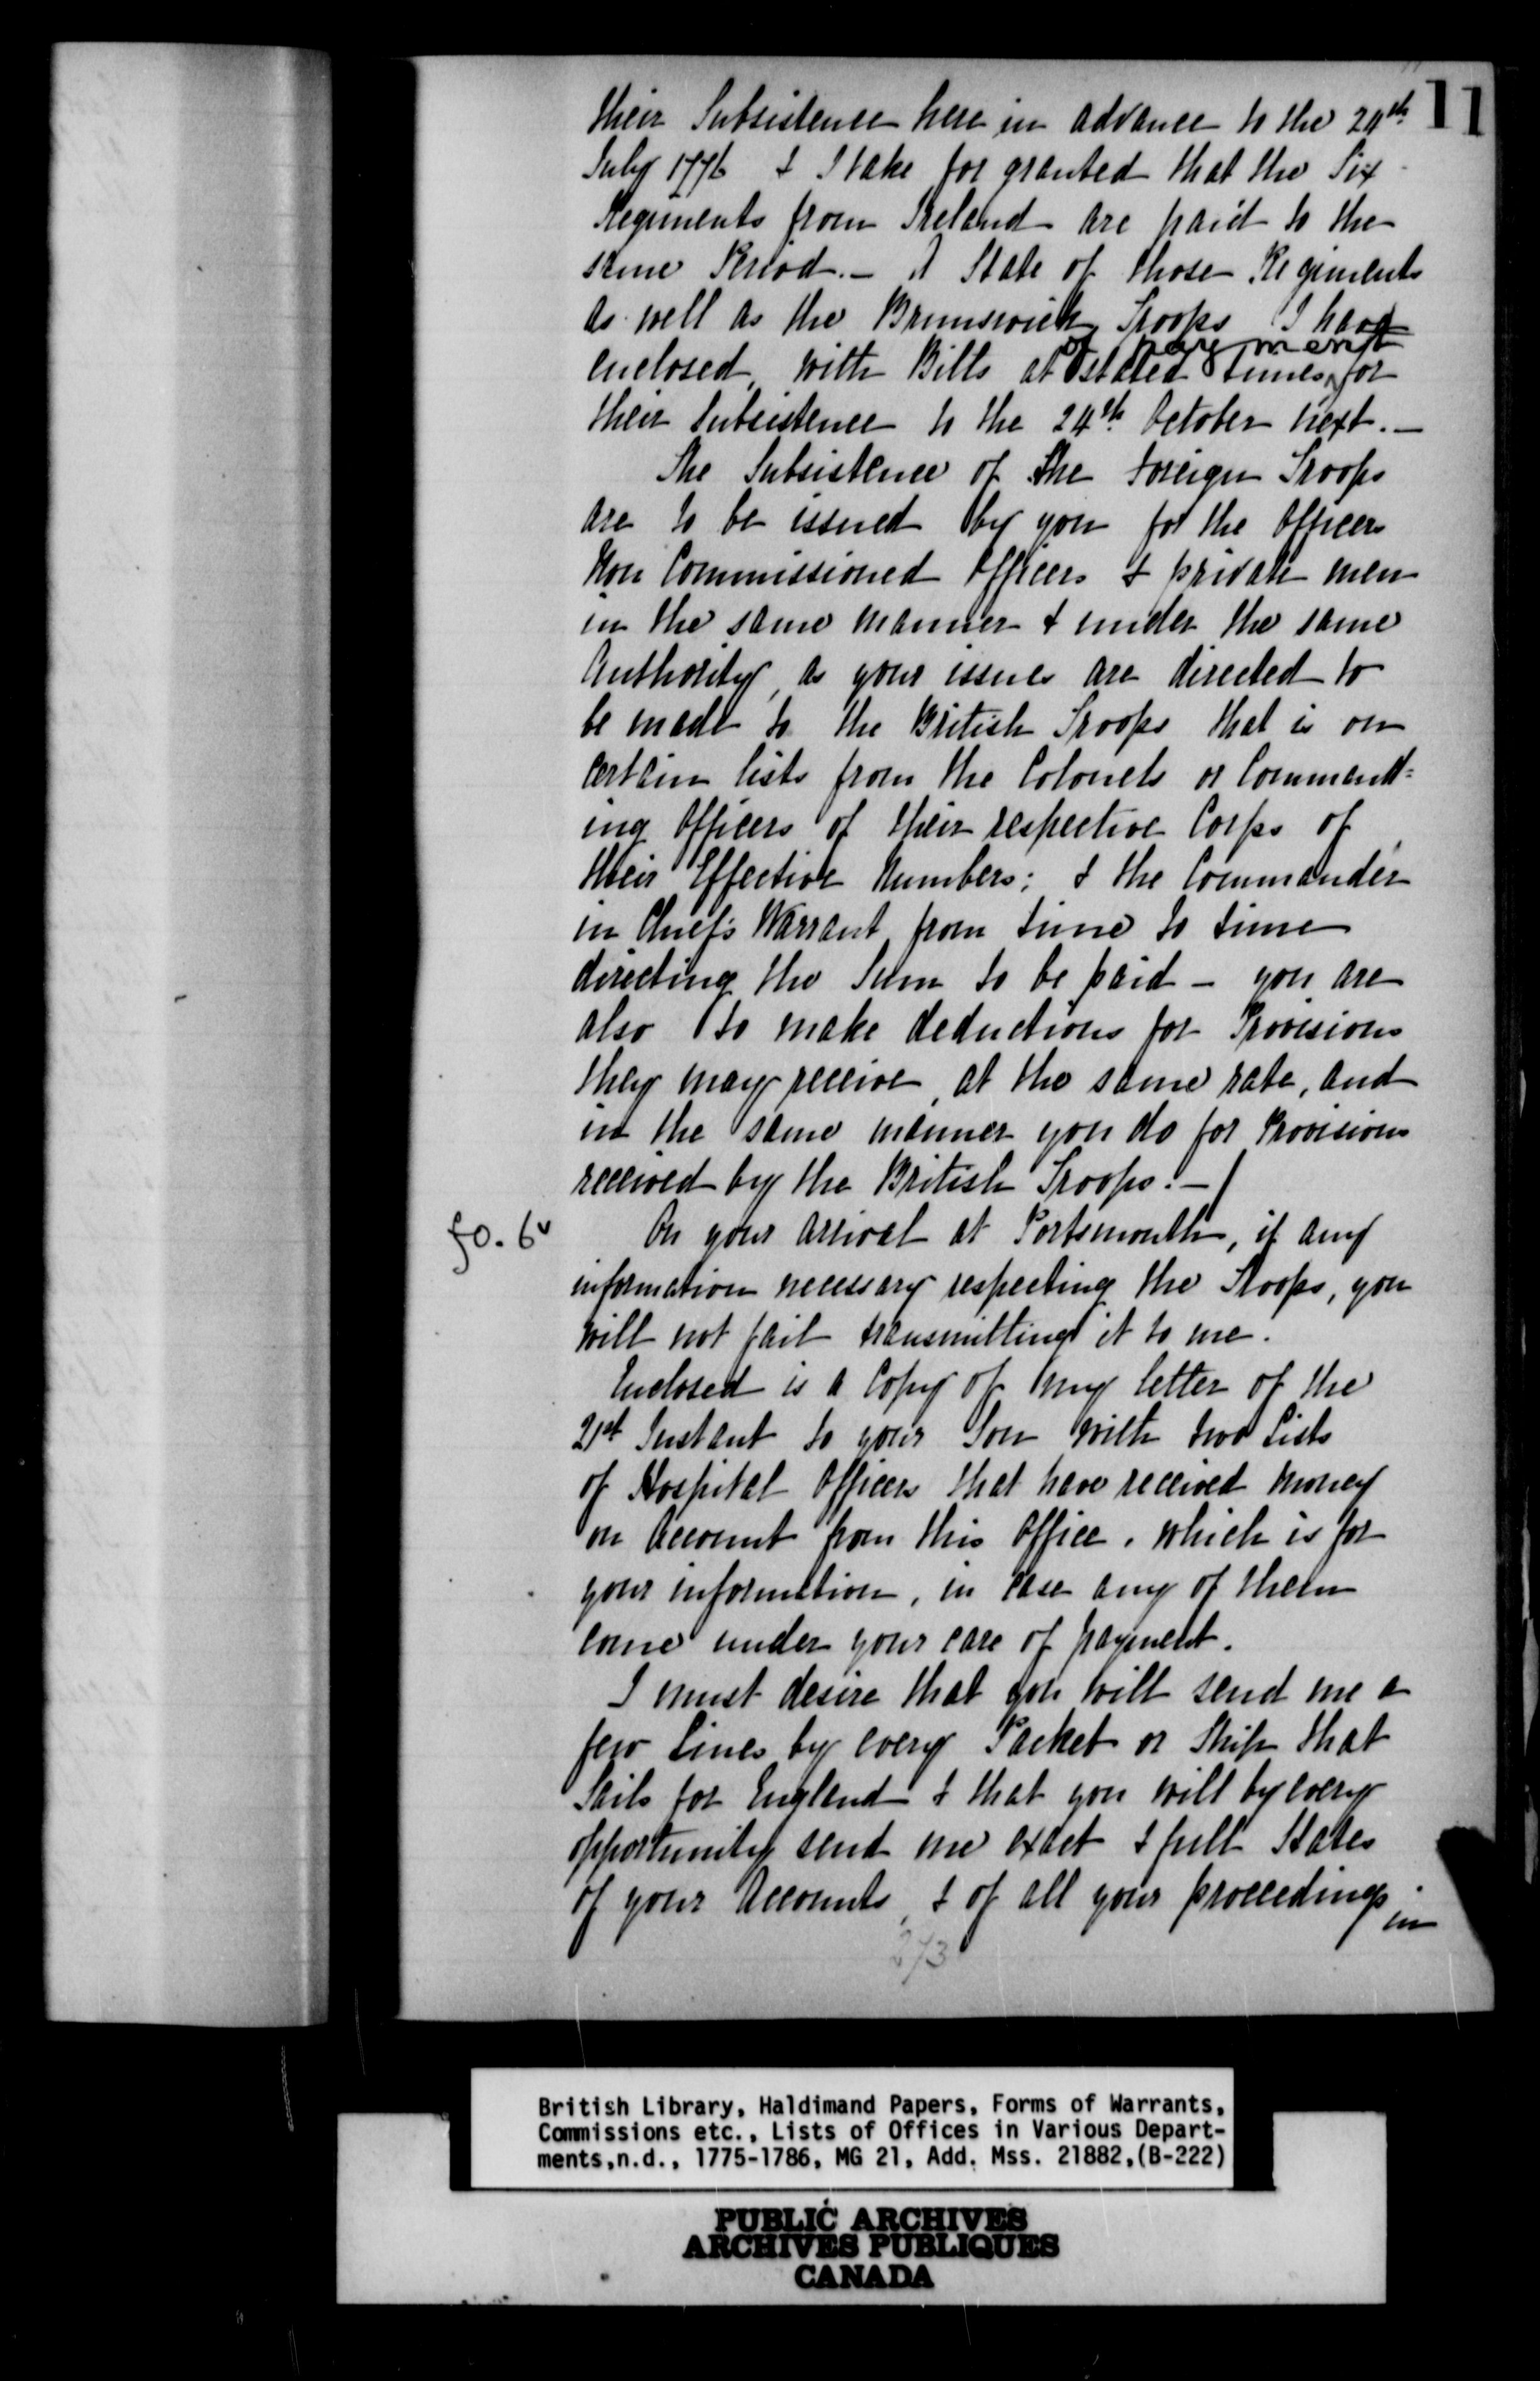 11
their Subsistence here in advance to the 24th
July 1776 & I take for granted that the Six
Regiments from Ireland are paid to the
same Period. - A State of those Regiments
as well as the Brunswick Troops I have
of payment
enclosed, with Bills at stated times, for
their Subsistence to the 24th October next. -
The Subsistence of the Foreign Troops
are to be issued by you for the Officers
Non Commissioned Officers & private men
in the same manner & under the same
Authority, as your issues are directed to
be made to the British Troops that is on
certain lists from the Colonels or Command=
ing Officers of their respective Corps of
their Effective Numbers; & the Commander
in Chief's Warrant from time to time
directing the Sum to be paid - you are
also to make deductions for Provisions
they may receive, at the same rate, and
in the same manner you do for Provisions
received by the British Troops. - /
fo. 6v
On your arrival at Portsmouth, if any
information necessary respecting the Troops, you
will not fail transmitting it to me.
Enclosed is a Copy of my letter of the
21st Instant to your Son with two Lists
of Hospital Officers that have received money
on Account from this Office, which is for
your information, in case any of them
come under your care of payment.
I must desire that you will send me a
few Lines by every Packet or Ship that
Sails for England & that you will by every
opportunity send me exact & full States
of your Accounts, & of all your proceedings
in
273
British Library, Haldimand Papers, Forms of Warrants,
Commissions etc., Lists of Offices in Various Depart-
ments,n.d., 1775-1786, MG 21, Add. Mss. 21882,(B-222)
PUBLIC ARCHIVES
ARCHIVES PUBLIQUES
CANADA